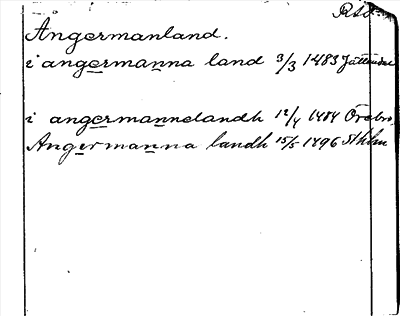 Ångermanland.
i angermanna land 3/3 1483
i angermannelandh 12/4 1484 Örebro.
Angermanna landh 15/5 1496 Sthlm